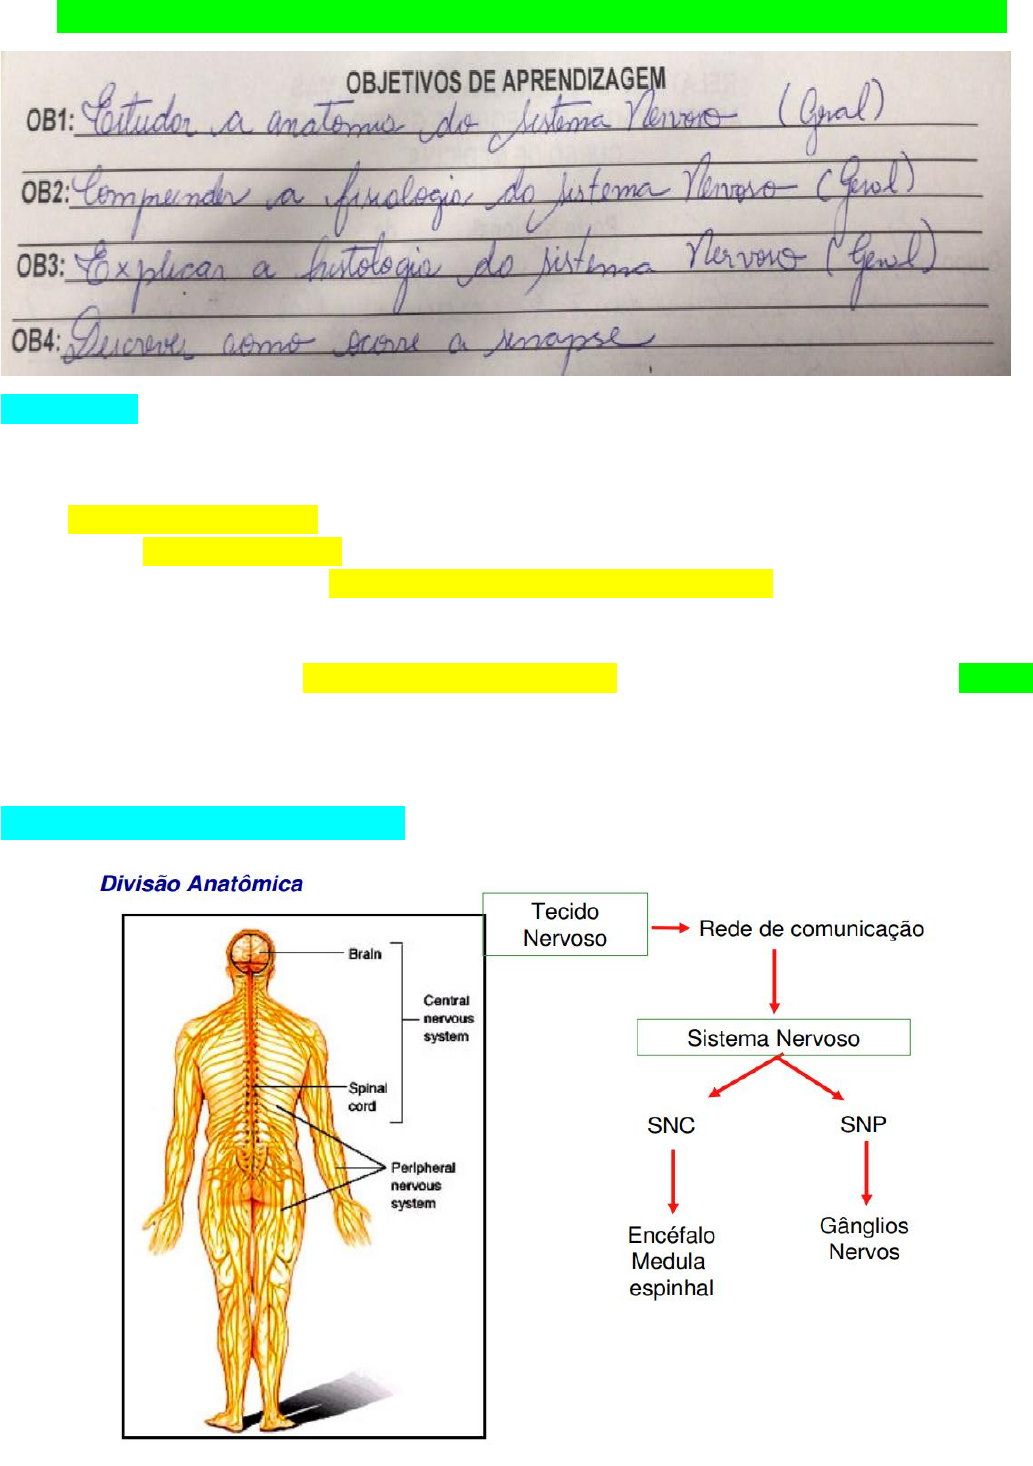 OBJETIVOS DE APRENDIZAGEM
OB1: Estudar a anatomia do sistema Nervoso (Geral)
OB2: Compreender a fisiologia do sistema Nervoso (Geral)
OB3: Explicar a histologia do sistema Nervoso (Geral)
OB4: Descrever como ocorre a sinapse
Divisão Anatômica
Brain
Central
nervous
system
Spinal
cord
Peripheral
nervous
system
Tecido
Nervoso
Rede de comunicação
Sistema Nervoso
SNC
SNP
Encéfalo
Medula
espinhal
Gânglios
Nervos